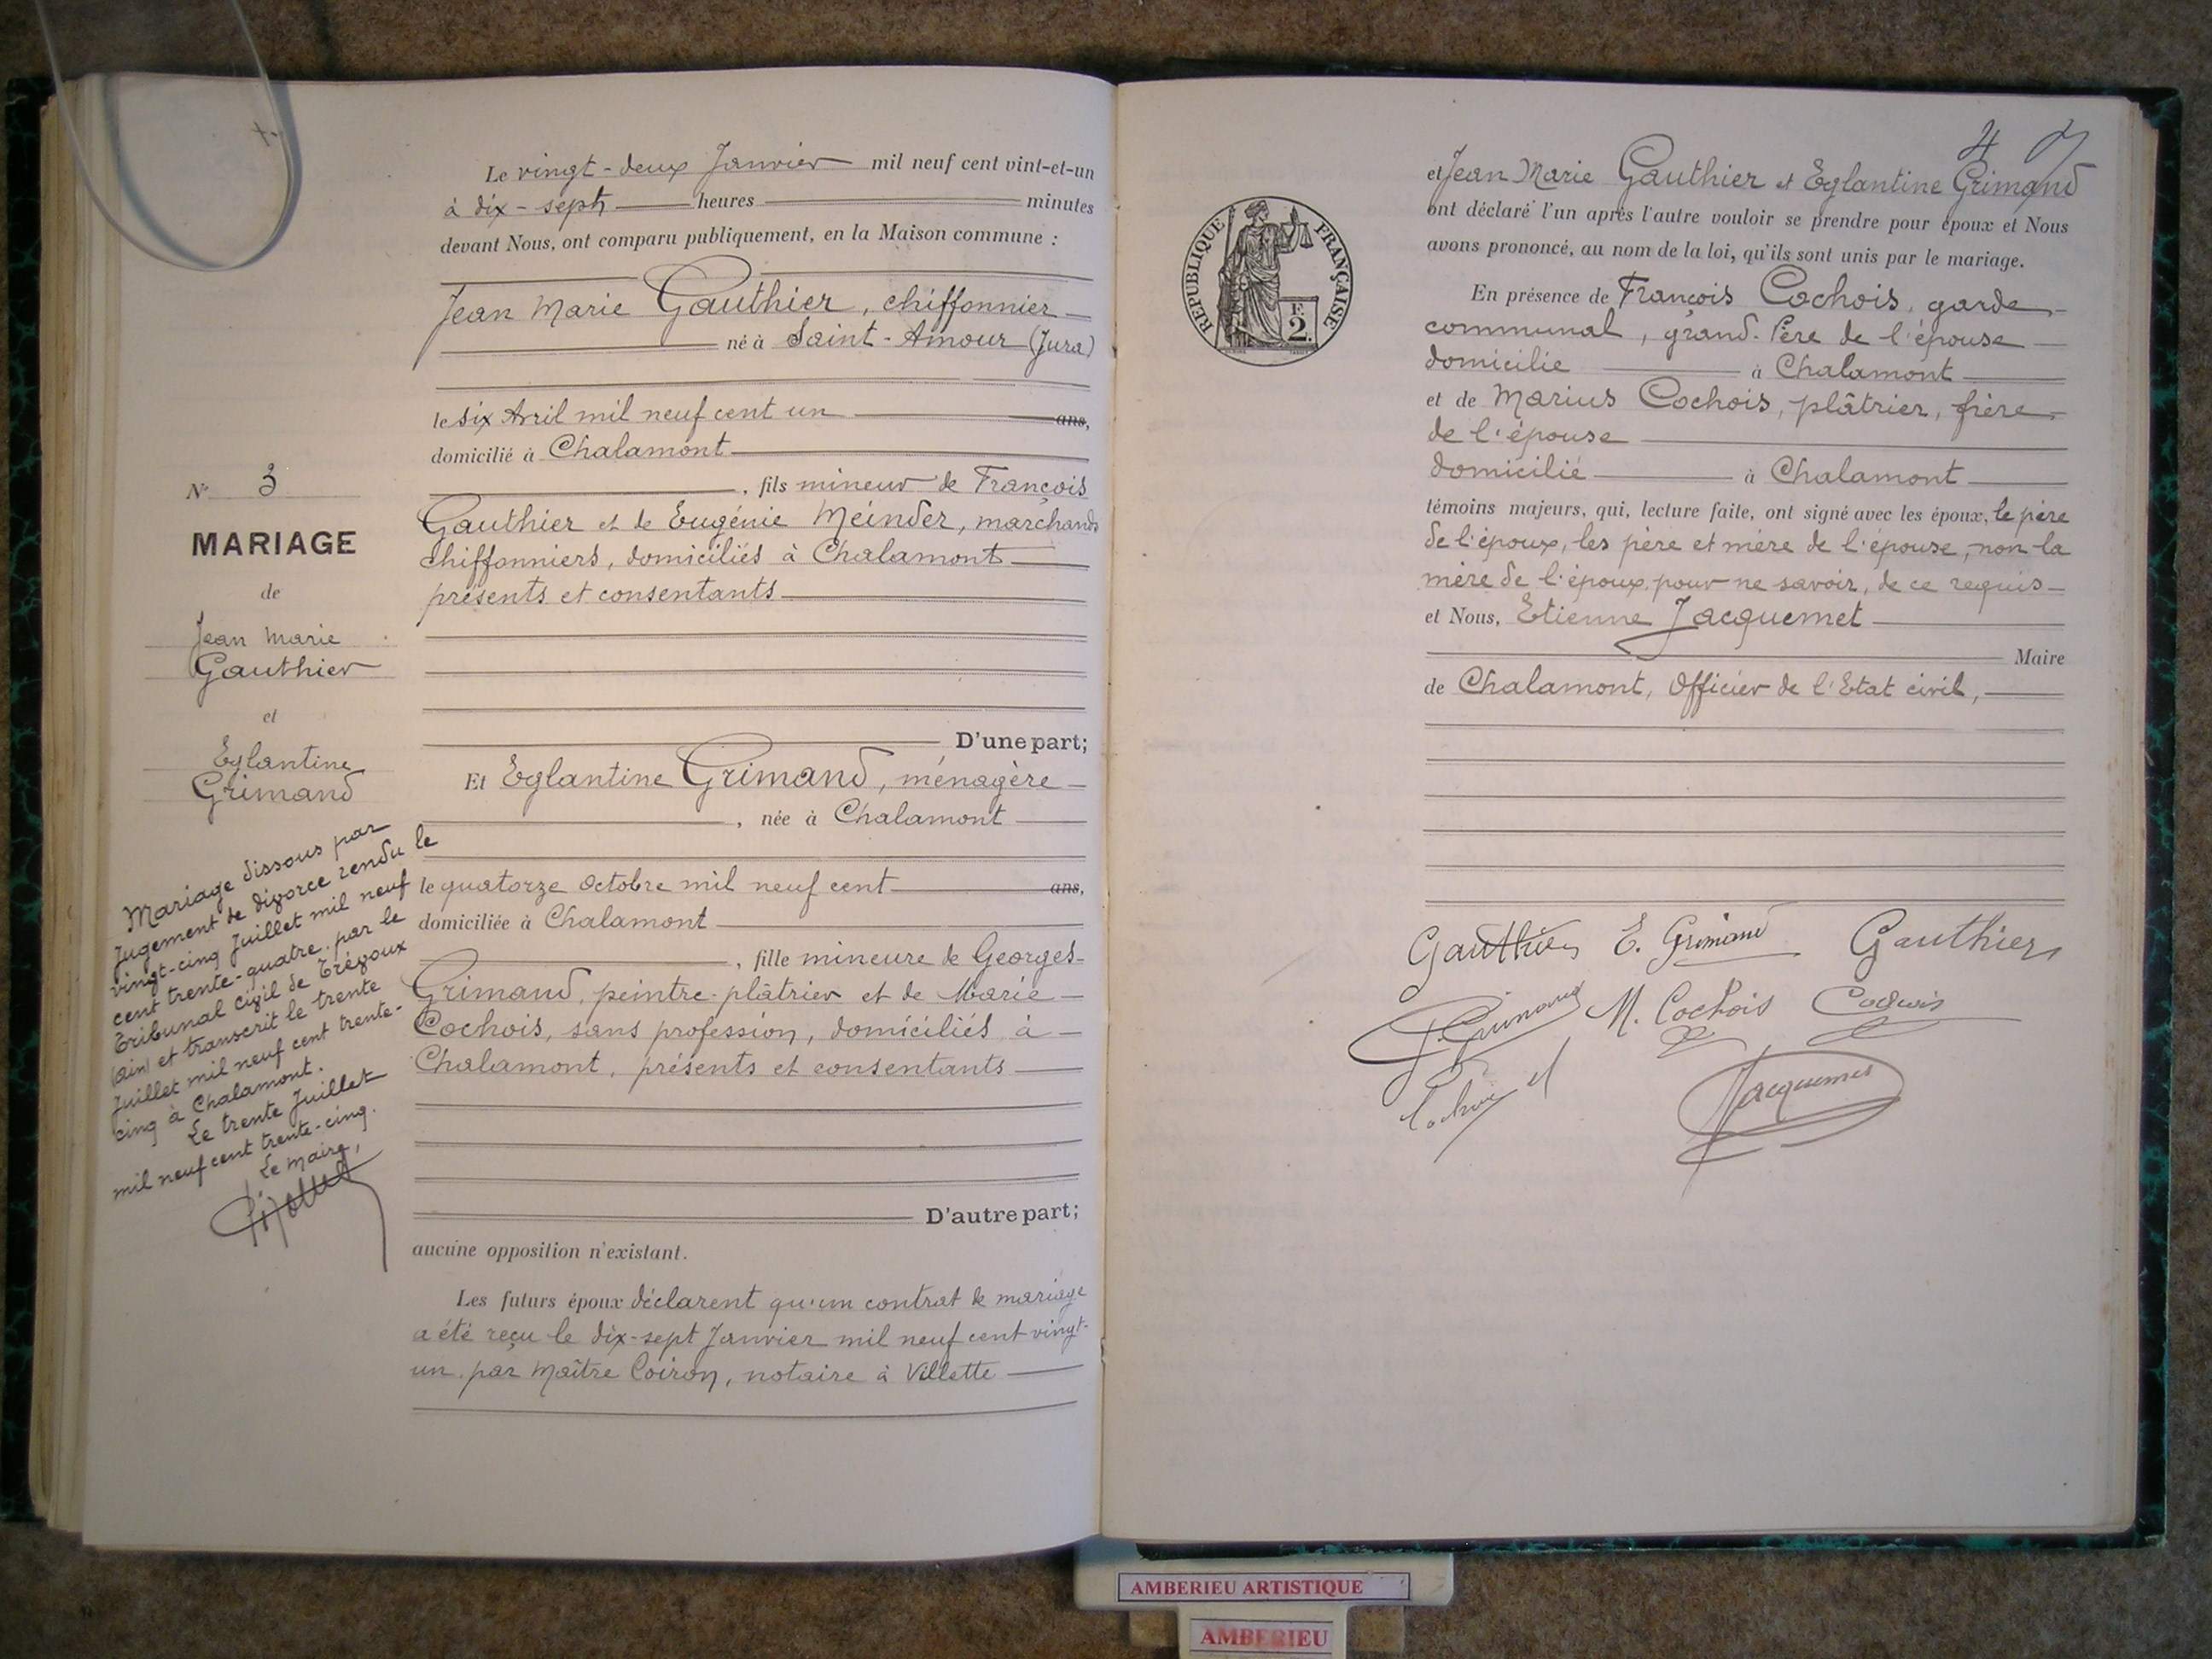 Le vingt-deux Janvier mil neuf cent vint-et-un
à dix-sept heures minutes
devant Nous, ont comparu publiquement, en la Maison commune :
Jean Marie Gauthier, chiffonnier
né à Saint-Amour (Jura)
le six Avril mil neuf cent un ans,
domicilié à Chalamont
, fils mineur de François
Gauthier et de Eugénie Meinder, marchands
chiffonniers, domiciliés à Chalamont
présents et consentants
D'une part;
Et Eglantine Grimand, ménagère
, née à Chalamont
le quatorze Octobre mil neuf cent ans,
domiciliée à Chalamont
, fille mineure de Georges
Grimand, peintre-plâtrier et de Marie
Cochois, sans profession, domiciliés à
Chalamont, présents et consentants
D'autre part;
aucune opposition n'existant.
Les futurs époux déclarent qu'un contrat de mariage
a été reçu le dix-sept Janvier mil neuf cent vingt-
un par Maître Coiron, notaire à Villette
N° 3
MARIAGE
de
Jean Marie
Gauthier
et
Eglantine
Grimand
Mariage dissous par
Jugement de divorce rendu le
vingt-cinq Juillet mil neuf
cent trente-quatre par le
Tribunal civil de Trévoux
(Ain) et transcrit le trente
Juillet mil neuf cent trente-
cinq à Chalamont.
Le trente Juillet
mil neuf cent trente-cinq.
Le Maire,
4
REPUBLIQUE FRANÇAISE
F.
2.
et Jean Marie Gauthier et Eglantine Grimand
ont déclaré l'un après l'autre vouloir se prendre pour époux et Nous
avons prononcé, au nom de la loi, qu'ils sont unis par le mariage.
En présence de François Cochois, garde
communal, grand-Père de l'épouse
domicilié à Chalamont
et de Marius Cochois, plâtrier, frère
de l'épouse
domicilié à Chalamont
témoins majeurs, qui, lecture faite, ont signé avec les époux, le père
de l'époux, les père et mère de l'épouse, non la
mère de l'époux pour ne savoir, de ce requis
et Nous, Etienne Jacquemet
Maire
de Chalamont, Officier de l'Etat civil,
Gauthier E. Grimand Gauthier
G. Grimand M. Cochois Cochois
Jacquemet
AMBERIEU ARTISTIQUE
AMBERIEU